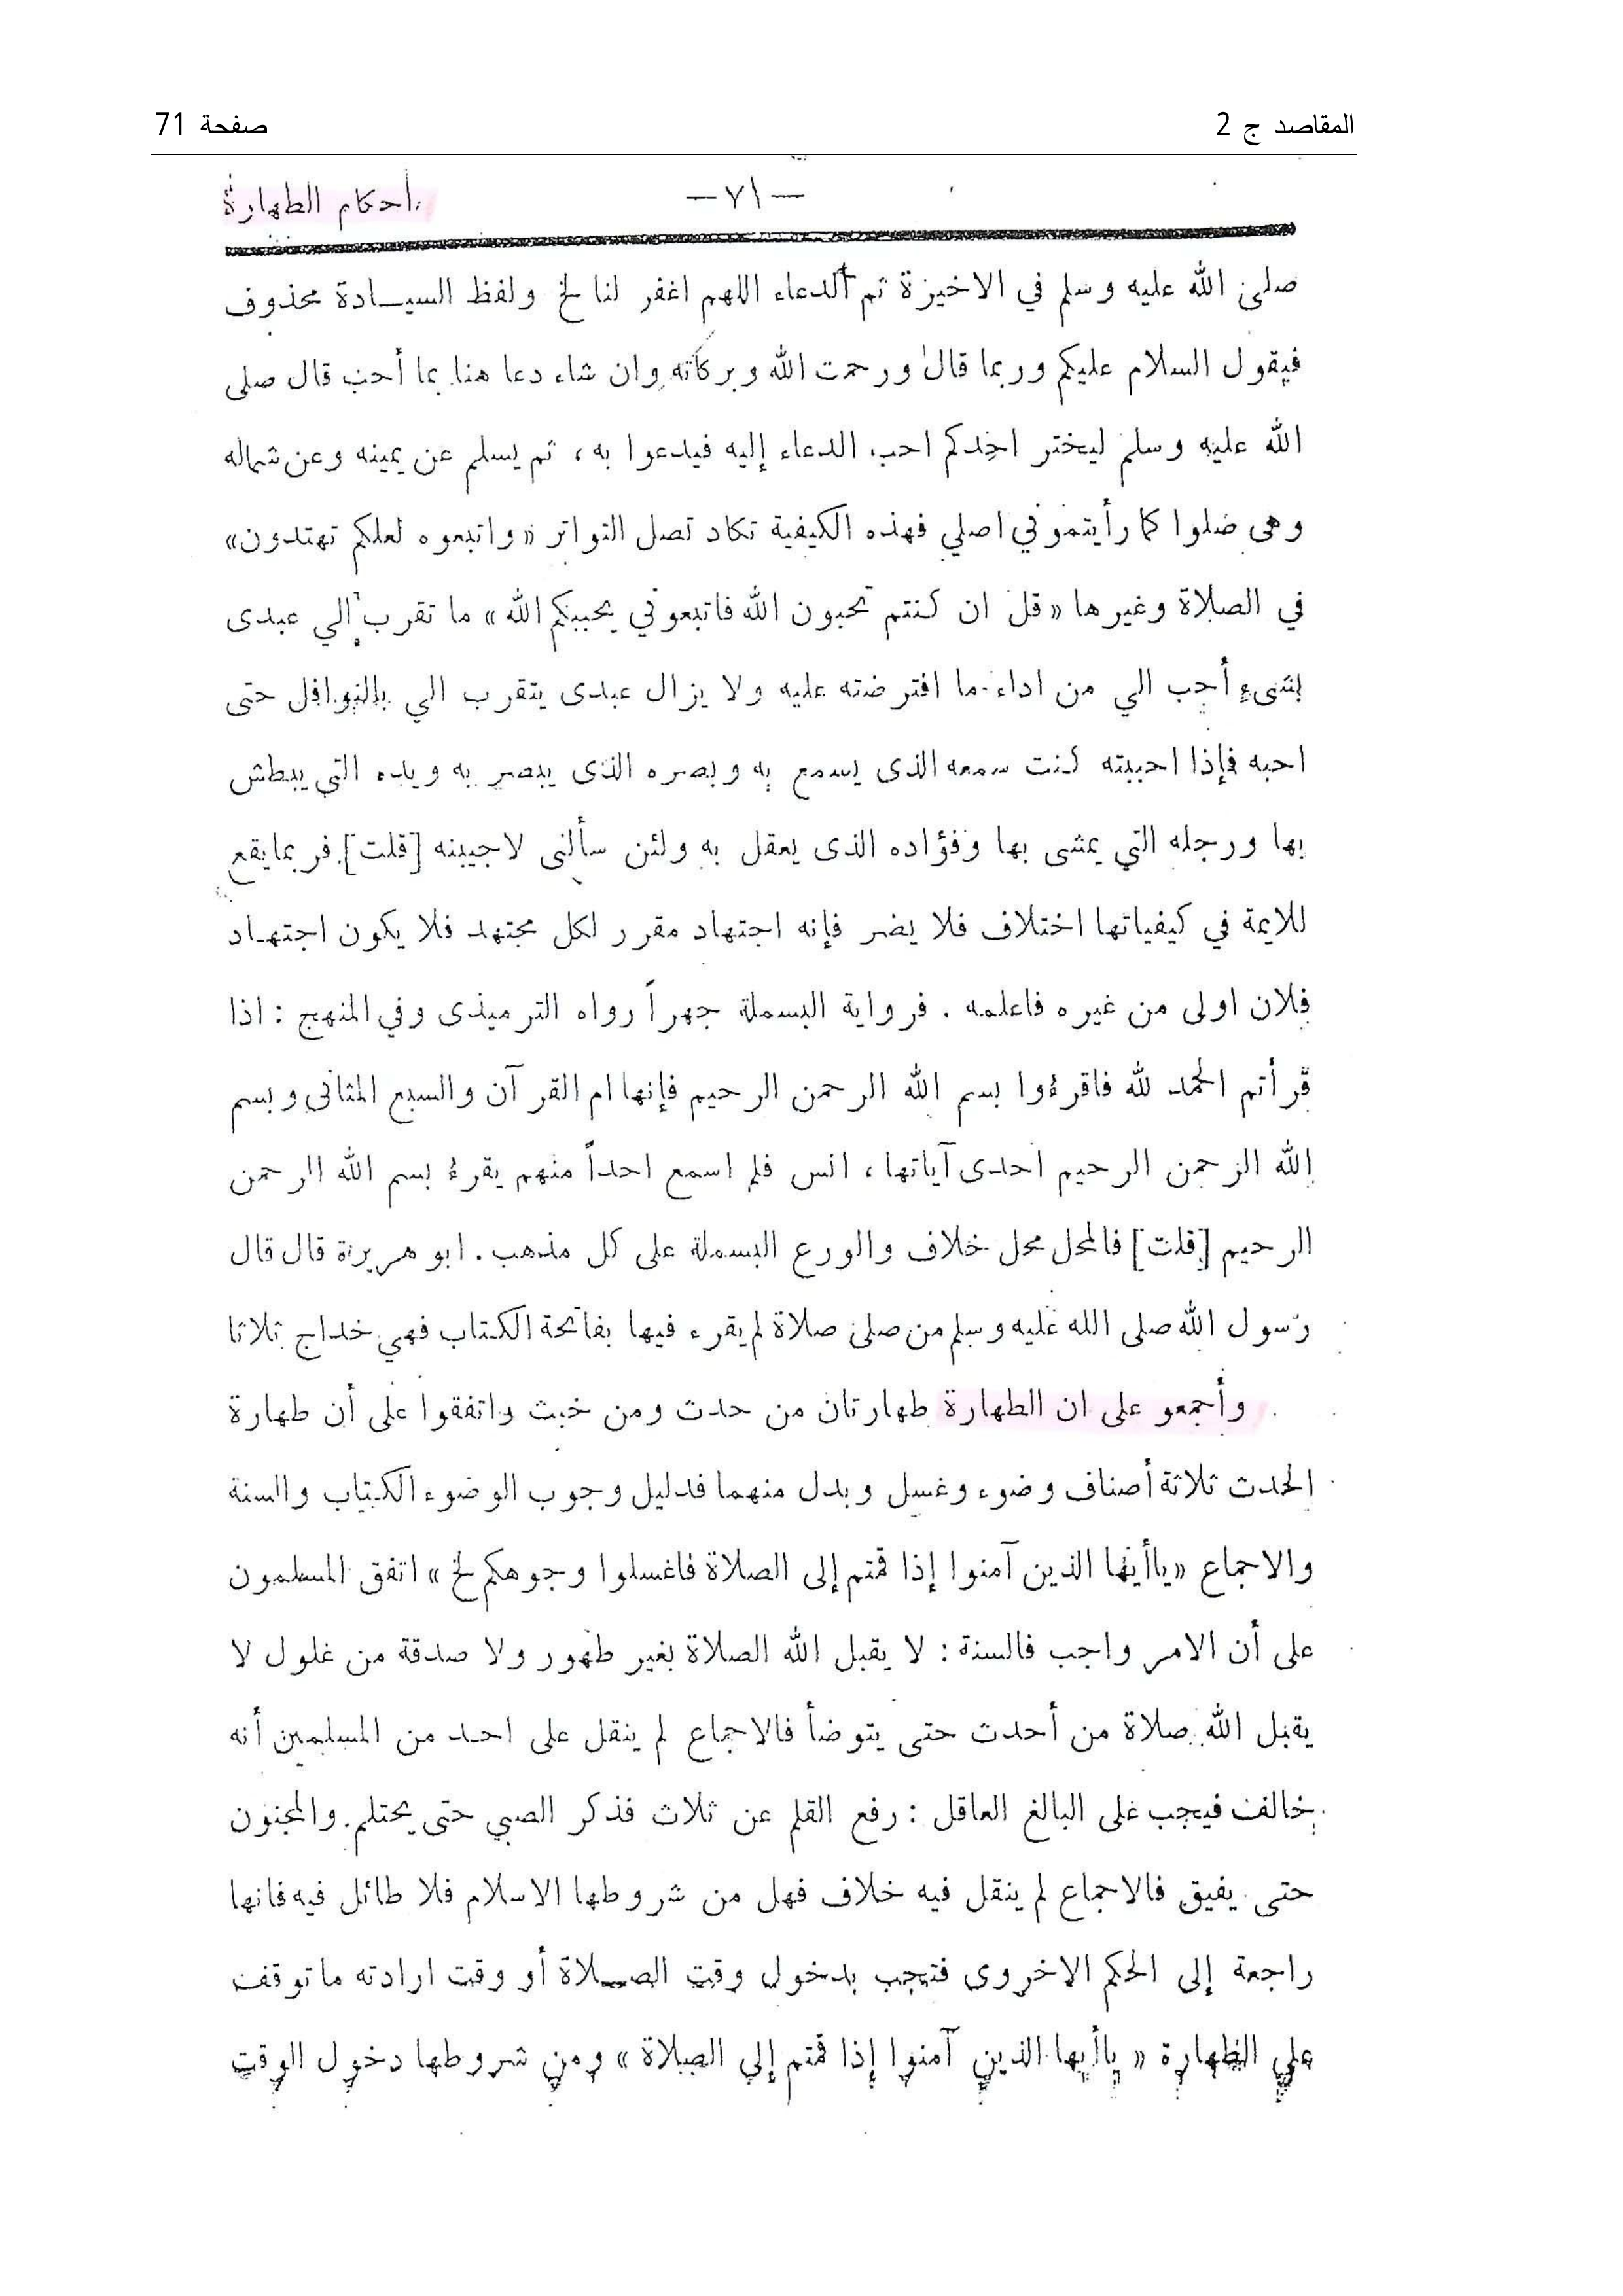 المقاصد ج 2
صفحة 71
— ٧١ —
أحكام الطهارة
صلى الله عليه وسلم في الاخيرة ثم الدعاء اللهم اغفر لنا لخ ولفظ السيادة محذوف
فيقول السلام عليكم وربما قال ورحمت الله وبركاته وان شاء دعا هنا بما أحب قال صلى
الله عليه وسلم ليختر احدكم احب الدعاء إليه فيدعوا به ، ثم يسلم عن يمينه وعن شماله
وهى صلوا كما رأيتموني اصلي فهذه الكيفية تكاد تصل التواتر « واتبعوه لعلكم تهتدون »
في الصلاة وغيرها « قل ان كنتم تحبون الله فاتبعوني يحببكم الله » ما تقرب الي عبدى
بشىء أحب الي من اداء ما افترضته عليه ولا يزال عبدى يتقرب الي بالنوافل حتى
احبه فإذا احببته كنت سمعه الذى يسمع به وبصره الذى يبصر به ويده التي يبطش
بها ورجله التي يمشى بها وفؤاده الذى يعقل به ولئن سألنى لاجيبنه [قلت] فربما يقع
للايمة في كيفياتها اختلاف فلا يضر فإنه اجتهاد مقرر لكل مجتهد فلا يكون اجتهاد
فلان اولى من غيره فاعلمه . فرواية البسملة جهراً رواه الترميذى وفي المنهج : اذا
قرأتم الحمد لله فاقرءُوا بسم الله الرحمن الرحيم فإنها ام القرآن والسبع المثانى وبسم
الله الرحمن الرحيم احدى آياتها ، انس فلم اسمع احداً منهم يقرءُ بسم الله الرحمن
الرحيم [قلت] فالمحل محل خلاف والورع البسملة على كل مذهب . ابو هريرة قال قال
رسول الله صلى الله عليه وسلم من صلى صلاة لم يقرء فيها بفاتحة الكتاب فهي خداج ثلاثا
وأجمعو على ان الطهارة طهارتان من حدث ومن خبث واتفقوا على أن طهارة
الحدث ثلاثة أصناف وضوء وغسل وبدل منهما فدليل وجوب الوضوء الكتاب والسنة
والاجماع « ياأيها الذين آمنوا إذا قمتم إلى الصلاة فاغسلوا وجوهكم لخ » اتفق المسلمون
على أن الامر واجب فالسنة : لا يقبل الله الصلاة بغير طهور ولا صدقة من غلول لا
يقبل الله صلاة من أحدث حتى يتوضأ فالاجماع لم ينقل على احد من المسلمين أنه
خالف فيجب على البالغ العاقل : رفع القلم عن ثلاث فذكر الصبي حتى يحتلم والمجنون
حتى يفيق فالاجماع لم ينقل فيه خلاف فهل من شروطها الاسلام فلا طائل فيه فانها
راجعة إلى الحكم الاخروى فتجب بدخول وقت الصلاة أو وقت ارادته ما توقف
على الطهارة « ياأيها الذين آمنوا إذا قمتم إلى الصلاة » ومن شروطها دخول الوقت